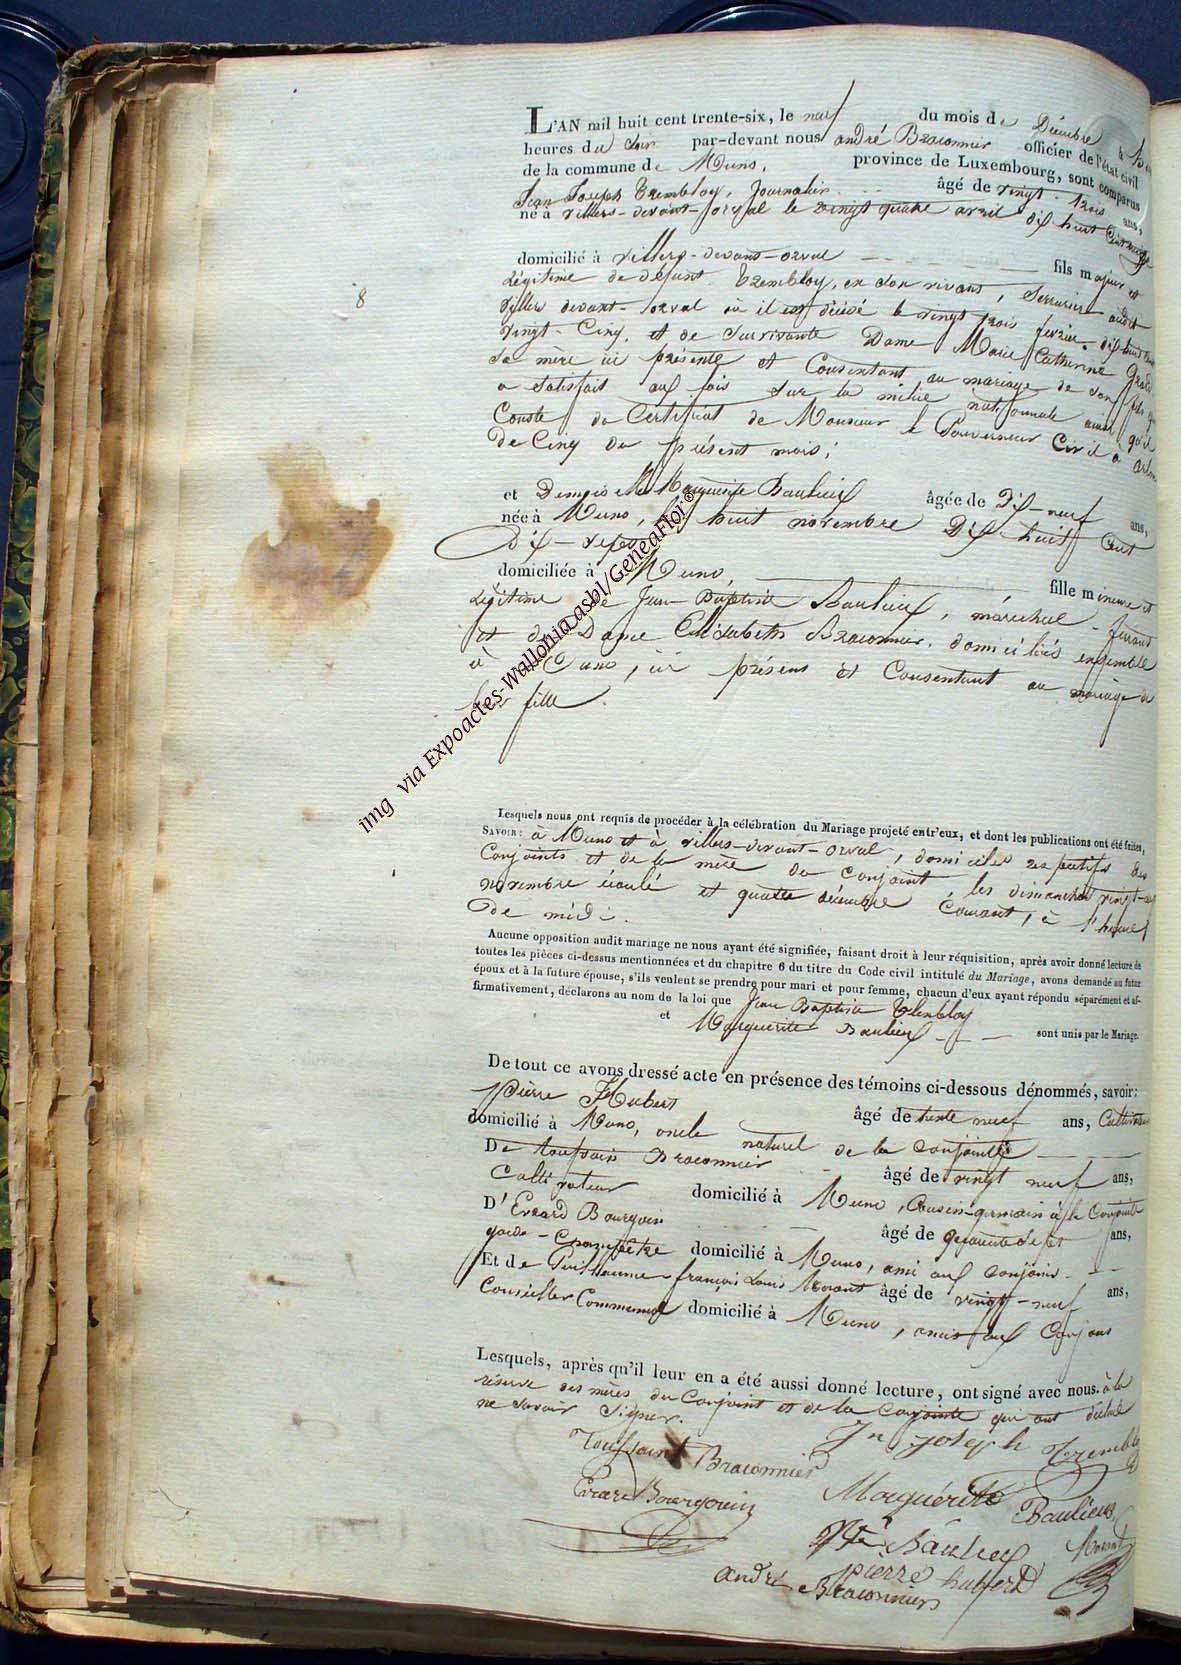 L'AN mil huit cent trente-six, le neuf du mois de Décembre à
heures du soir par-devant nous andré Braconnier officier de l'état civil
de la commune de Muno, province de Luxembourg, sont comparus
Jean Joseph Trembloy, Journalier âgé de vingt-trois ans,
né à villers-devant-orval le vingt quatre avril dix huit cent
domicilié à villers-devant-orval fils majeur et
Légitime de défunt Trembloy, en son vivant, serrurier audit
villers devant-orval où il est décédé le vingt trois février dix huit cent
vingt-cinq, et de survivante Dame Marie Catherine
sa mère ici présente et Consentant au mariage de son fils qui
a satisfait aux lois sur la milice nationale ainsi qu'il
Conste du Certificat de Monsieur le Gouverneur Civil à Arlon
de Cinq du présent mois;
8
et Demoiselle Marguerite Baulieux âgée de Dix-neuf ans,
née à Muno, le huit novembre Dix huit Cent
Dix-sept
domiciliée à Muno, fille mineure et
Légitime de Jean-Baptiste Baulieux, maréchal-ferrant
et de Dame Elisabeth Braconnier, domiciliés ensemble
à Muno, ici présens et Consentant au mariage de
leur fille.
img via Expoactes-Wallonia asbl/GeneaFloi ©
Lesquels nous ont requis de procéder à la célébration du Mariage projeté entr'eux, et dont les publications ont été faites,
SAVOIR: à Muno et à villers-devant-orval, domiciles respectifs des
Conjoints et de la mère du conjoint, les dimanches vingt-sept
novembre écoulé et quatre décembre Courant, à l'heure
de midi.
Aucune opposition audit mariage ne nous ayant été signifiée, faisant droit à leur réquisition, après avoir donné lecture de
toutes les pièces ci-dessus mentionnées et du chapitre 6 du titre du Code civil intitulé du Mariage, avons demandé au futur
époux et à la future épouse, s'ils veulent se prendre pour mari et pour femme, chacun d'eux ayant répondu séparément et af-
firmativement, déclarons au nom de la loi que Jean Baptiste Trembloy
et Marguerite Baulieux sont unis par le Mariage.
De tout ce avons dressé acte en présence des témoins ci-dessous dénommés, savoir:
Pierre Hubert âgé de trente neuf ans, Cultivateur
domicilié à Muno, oncle naturel de la conjointe
De toussaint Braconnier âgé de vingt neuf ans,
Cultivateur domicilié à Muno, Cousin-germain à la Conjointe
D'Evrard Bourgoin âgé de quarante sept ans,
garde-Champêtre domicilié à Muno, ami aux conjoins
Et de Guillaume-françois Louis Morant âgé de vingt-neuf ans,
Conseiller Communal domicilié à Muno, amis aux Conjoins
Lesquels, après qu'il leur en a été aussi donné lecture, ont signé avec nous. à la
réserve des mères du Conjoint et de la Conjointe qui ont déclaré
ne savoir Signer.
Jn joseph Trembloy
Toussaint Braconnier
Marguérite Baulieux
Evrard Bourgouin
Bte Baulieux Morant
pierre hubert
andré Braconnier